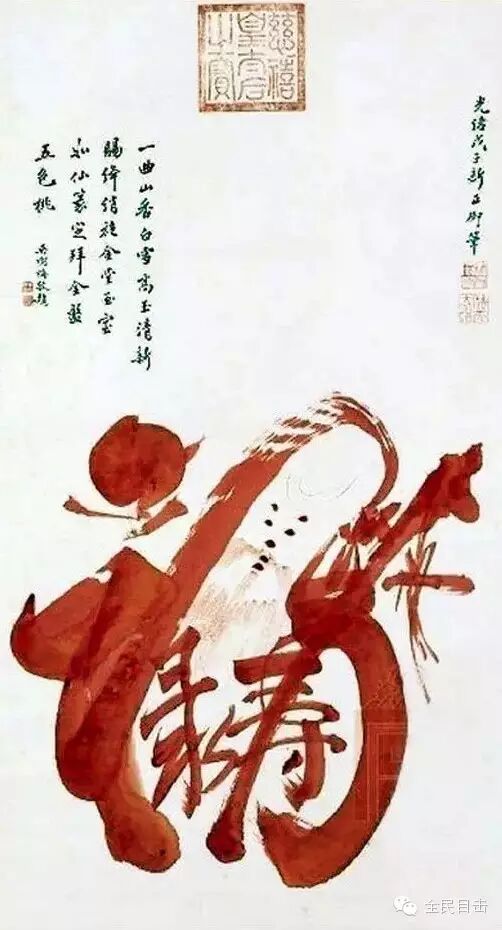 慈禧
皇太后
之寶
光緒戊子新正御筆
一曲山香白雪高玉清新
賜絳綃袍金堂玉室
仙篆定拜金盤
五色桃
吳樹梅敬題
福
祿壽
全民目击